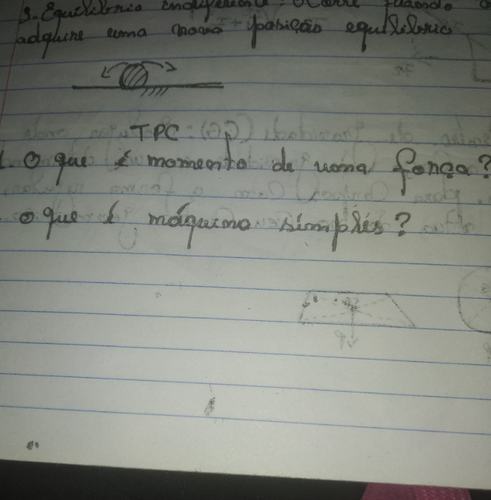 3. Equilibrio indiferente: Ocorre quando o
adquire uma nova posição equilibrio
TPC:
1. O que é momento de uma força?
. O que é máquina simplés?